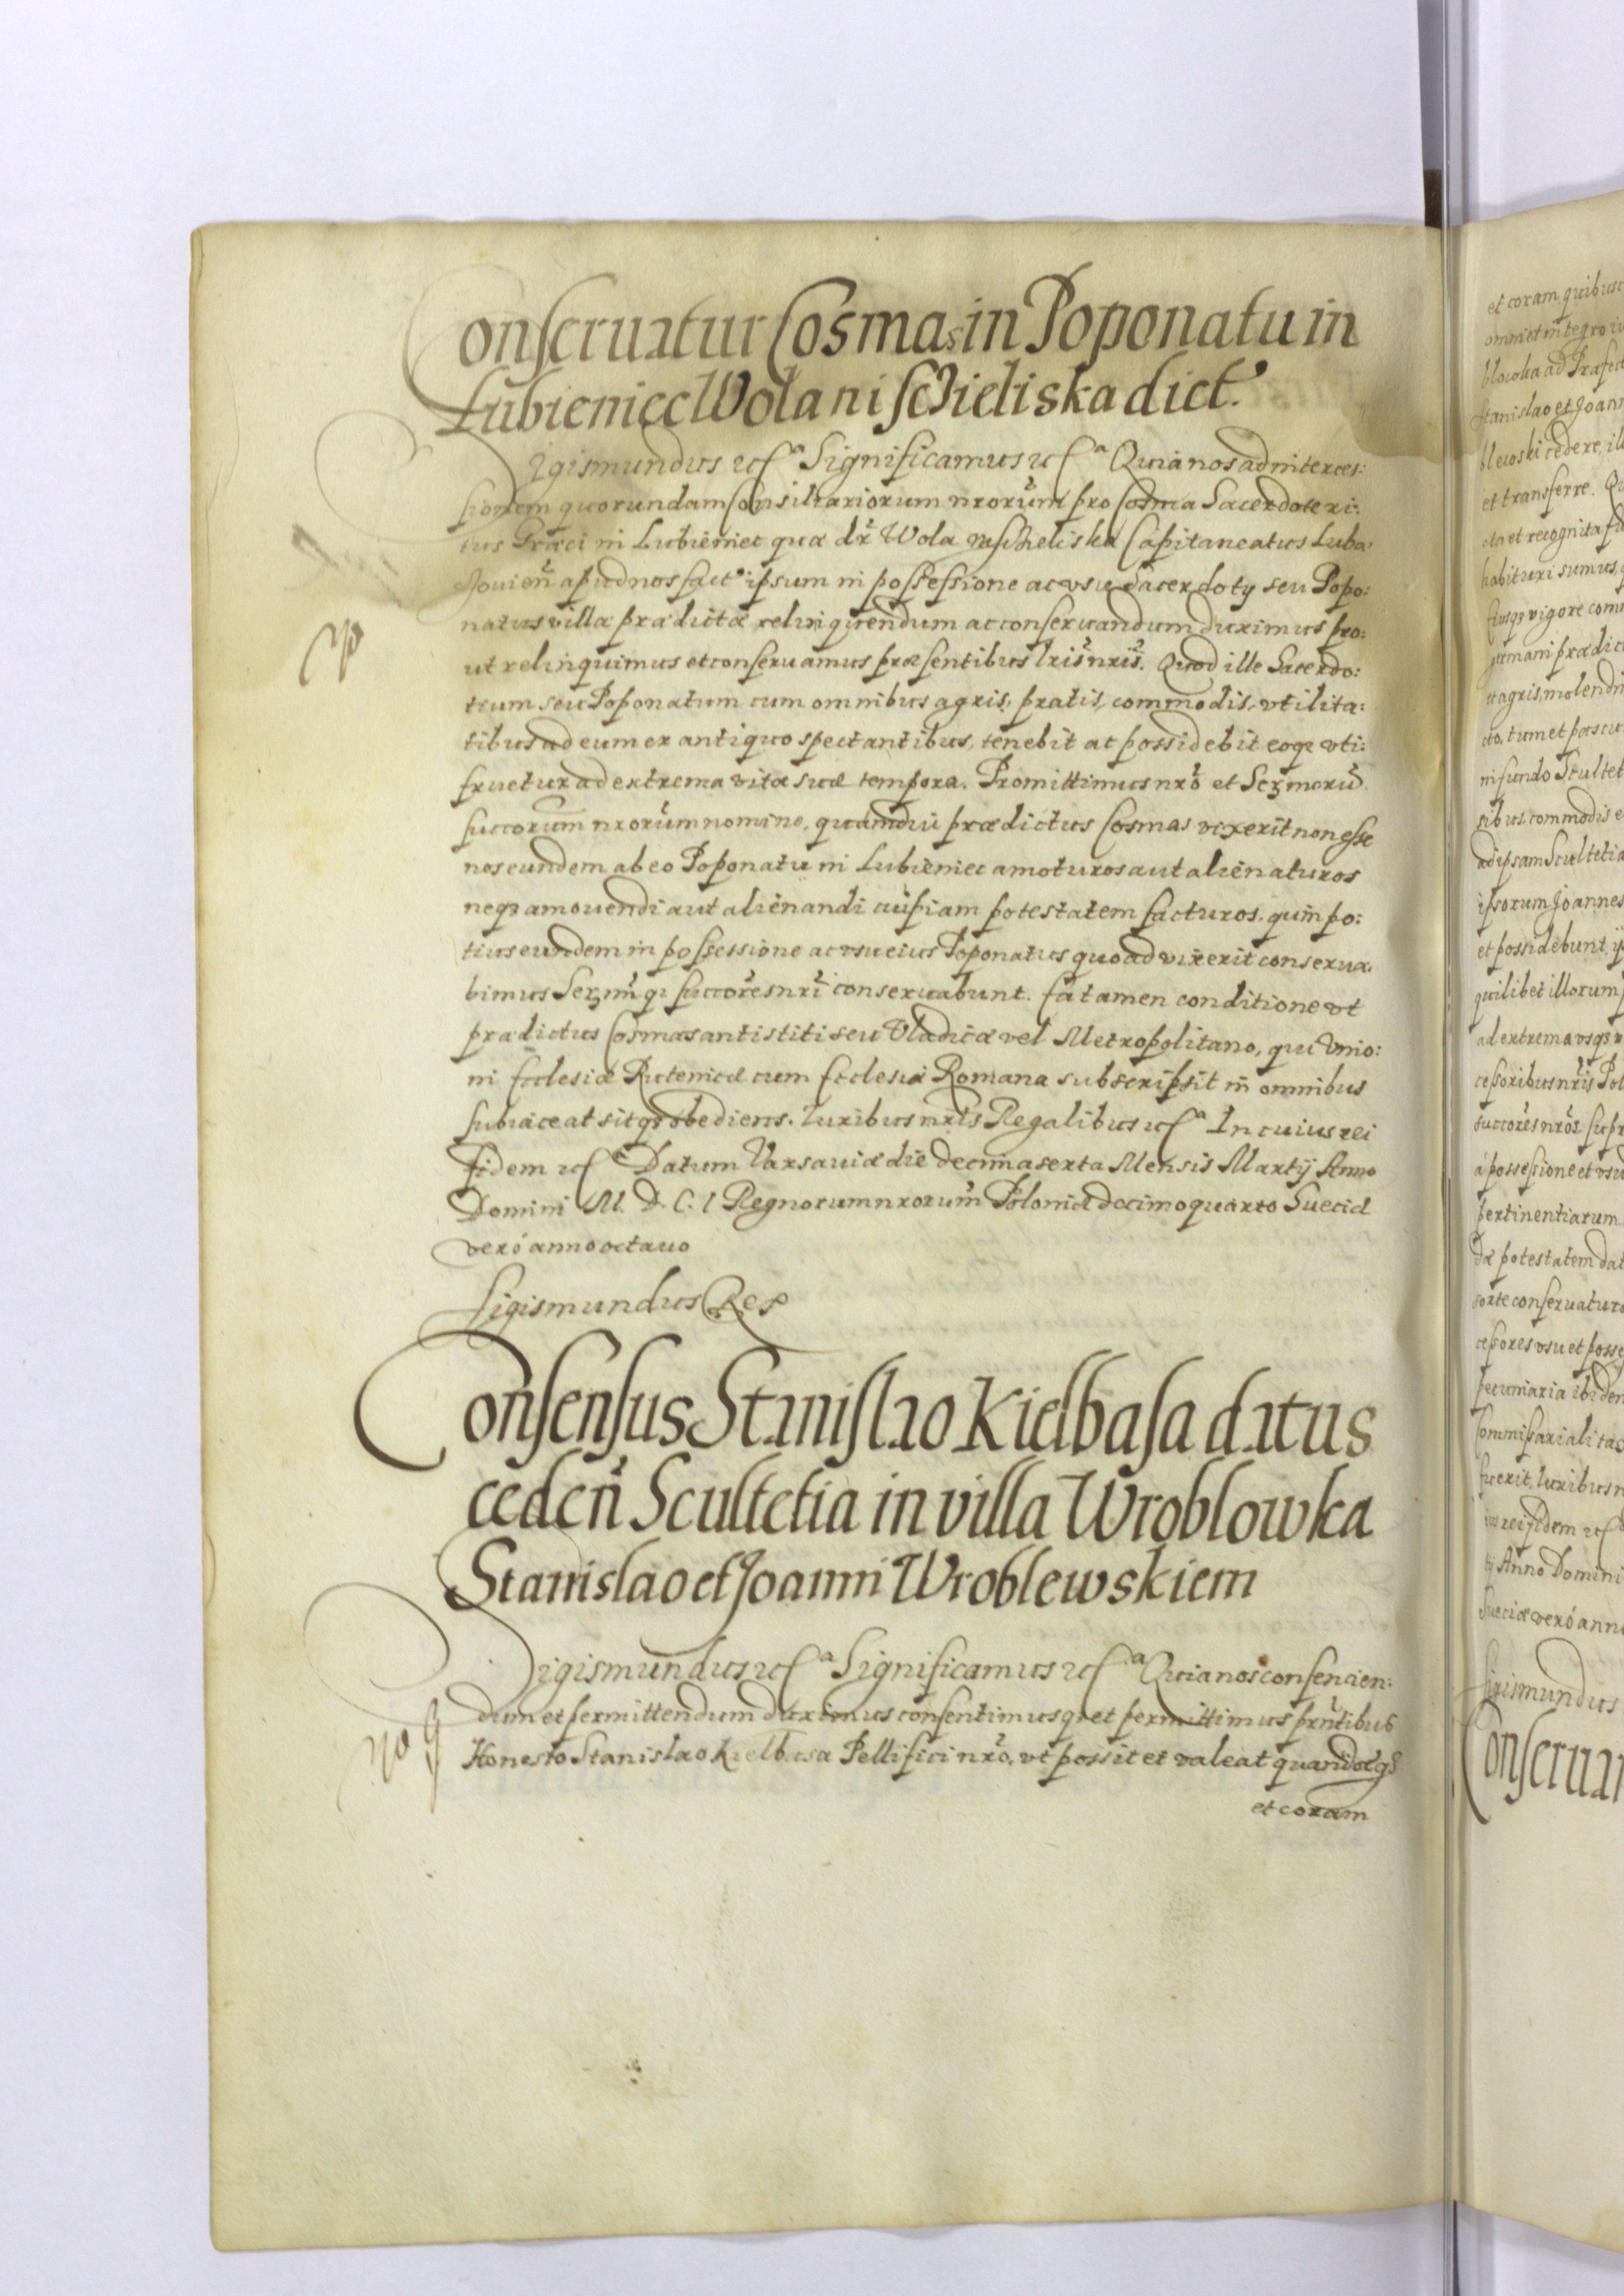 Conseruatur Cosmas in Poponatu in
Lubieniec Wola nischieliska dict.
Sigismundus etc a Significamus etc a Quia nos ad interces:
sionem quorundam Consiliariorum nrorum pro Cosma Sacerdote ri:
tus Græci in Lubieniec quæ dr Wola Capitaneatus Luba:
apud nos fact ipsum in possessione ac vsu Sacerdotÿ seu Popo:
natus villæ prædictæ relinquendum ac conseruandum duximus pro:
ut relinquimus et conseruamus præsentibus lris nris. Quod ille Sacerdo:
tium seu Poponatum cum omnibus agris, pratis, commodis, vtilita:
tibus ad eum ex antiquo spectantibus, tenebit ac possidebit eoq vti:
fruetur ad extrema vitæ suæ tempora. Promittimus nro et Sermorū
succorum nrorum nomine, quamdiu prædictus Cosmas vixerit non esse
nos eundem ab eo Poponatu in Lubieniec amoturos aut alienaturos
neq amouendi aut alienandi cuipiam potestatem facturos. quin po:
tius eundem in possessione ac vsu eius Poponatus quoad vixerit conserua:
bimus Sermiq succores nri conseruabunt. Ea tamen conditione vt
prædictus Cosmas antistiti seu Vladicæ vel Metropolitano, qui Vnio:
ni Ecclesiæ Rutenicæ cum Ecclesia Romana subscripsit in omnibus
subiaceat sitq obediens. Iuribus nris Regalibus etc a In cuius rei
fidem etc Datum Varsauiæ die decima sexta Mensis Martÿ Anno
Domini M. D. C. I Regnorum nrorum Poloniæ decimo quarto Sueciæ
veró anno octauo
Sigismundus Rex
Consensus Stanislao Kielbasa datus
ceden Scultetia in villa Wroblowka
Stanislao et Joanni Wroblewskiem
Sigismundus etc a Significamus etc a Quia nos consencien:
dum et permittendum duximus consentimusq et permittimus prntibus
Honesto Stanislao Kielbasa Pellifici nro, vt possit et valeat quandocq
et coram
et coram quibusc
omni et integro iu
Stanislao et Joann
blewski cedere, il
et transferre. Qu
cta et recognita
habituri sumus,
Eiusq vigore com
germani prædic
et agris, molendin
cto, tum et pascu
in fundo Scultet
sibus commodis e
ad ipsam Scultetia
ipsorum Joannes
et possidebunt,
quilibet illorum
ad extrema vsq v
cessoribus nris Pol
succores nros
á possessione et vsu
pertinentiarum
dæ potestatem dat
conseruaturo
cessores vsu et posse
pecuniaria ibidem
Commissarialitas
fuerit. Iuribus n
ius rei fidem etc
tÿ Anno Domini
Sueciæ veró anno
Sigismundus
Conseruat